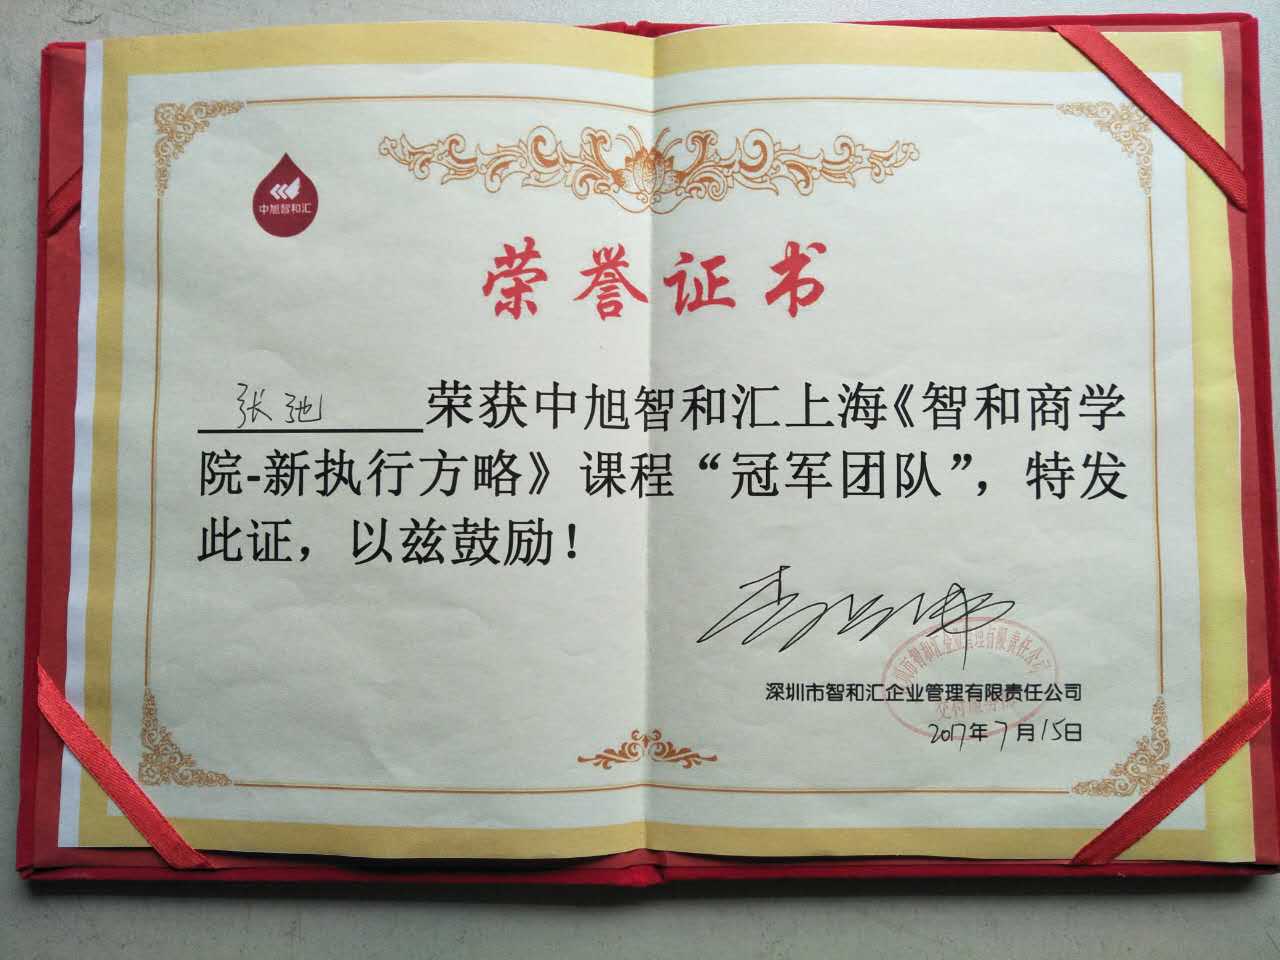 中旭智和汇
荣誉证书
张弛 荣获中旭智和汇上海《智和商学
院-新执行方略》课程“冠军团队”，特发
此证，以兹鼓励！
深圳市智和汇企业管理有限责任公司
2017年7月15日